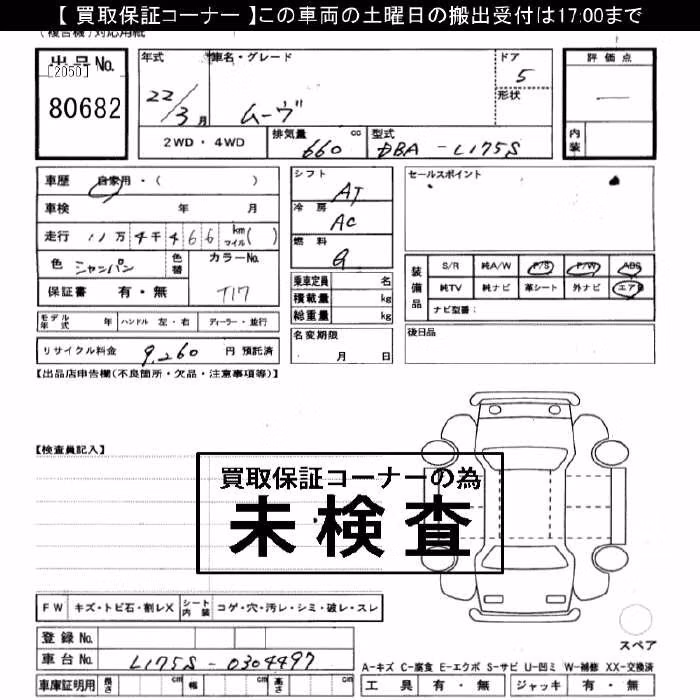 【 買取保証コーナー 】この車両の土曜日の搬出受付は17:00まで
(複合機)対応用紙
出品No.
[2050]
80682
年式
22/3月
車名・グレード
ムーヴ
ドア
5
形状
評価点
—
内装
2WD・4WD
排気量
660 cc
型式
DBA - L175S
車歴 自家用・( )
車検 年 月
走行 11万 4千 4 6 6 km マイル( )
色 シャンパン 色替
カラーNo.
T17
保証書 有・無
シフト
AT
冷房
AC
燃料
G
乗車定員 名
積載量 kg
総重量 kg
セールスポイント
装備品
S/R 純A/W P/S P/W ABS
純TV 純ナビ 革シート 外ナビ エアB
ナビ型番:
モデル年式 年 ハンドル 左・右 ディーラー・並行
リサイクル料金 9,260 円 預託済
名変期限
月 日
後日品
【出品店申告欄(不良箇所・欠品・注意事項等)】
【検査員記入】
買取保証コーナーの為
未検査
FW キズ・トビ石・割レX シート内装 コゲ・穴・汚レ・シミ・破レ・スレ
登録No.
車台No. L175S - 0304497
スペア
A-キズ C-腐食 E-エクボ S-サビ U-凹ミ W-補修 XX-交換済
車庫証明用 長さ cm 幅 cm 高さ cm
工具 有・無 ジャッキ 有・無